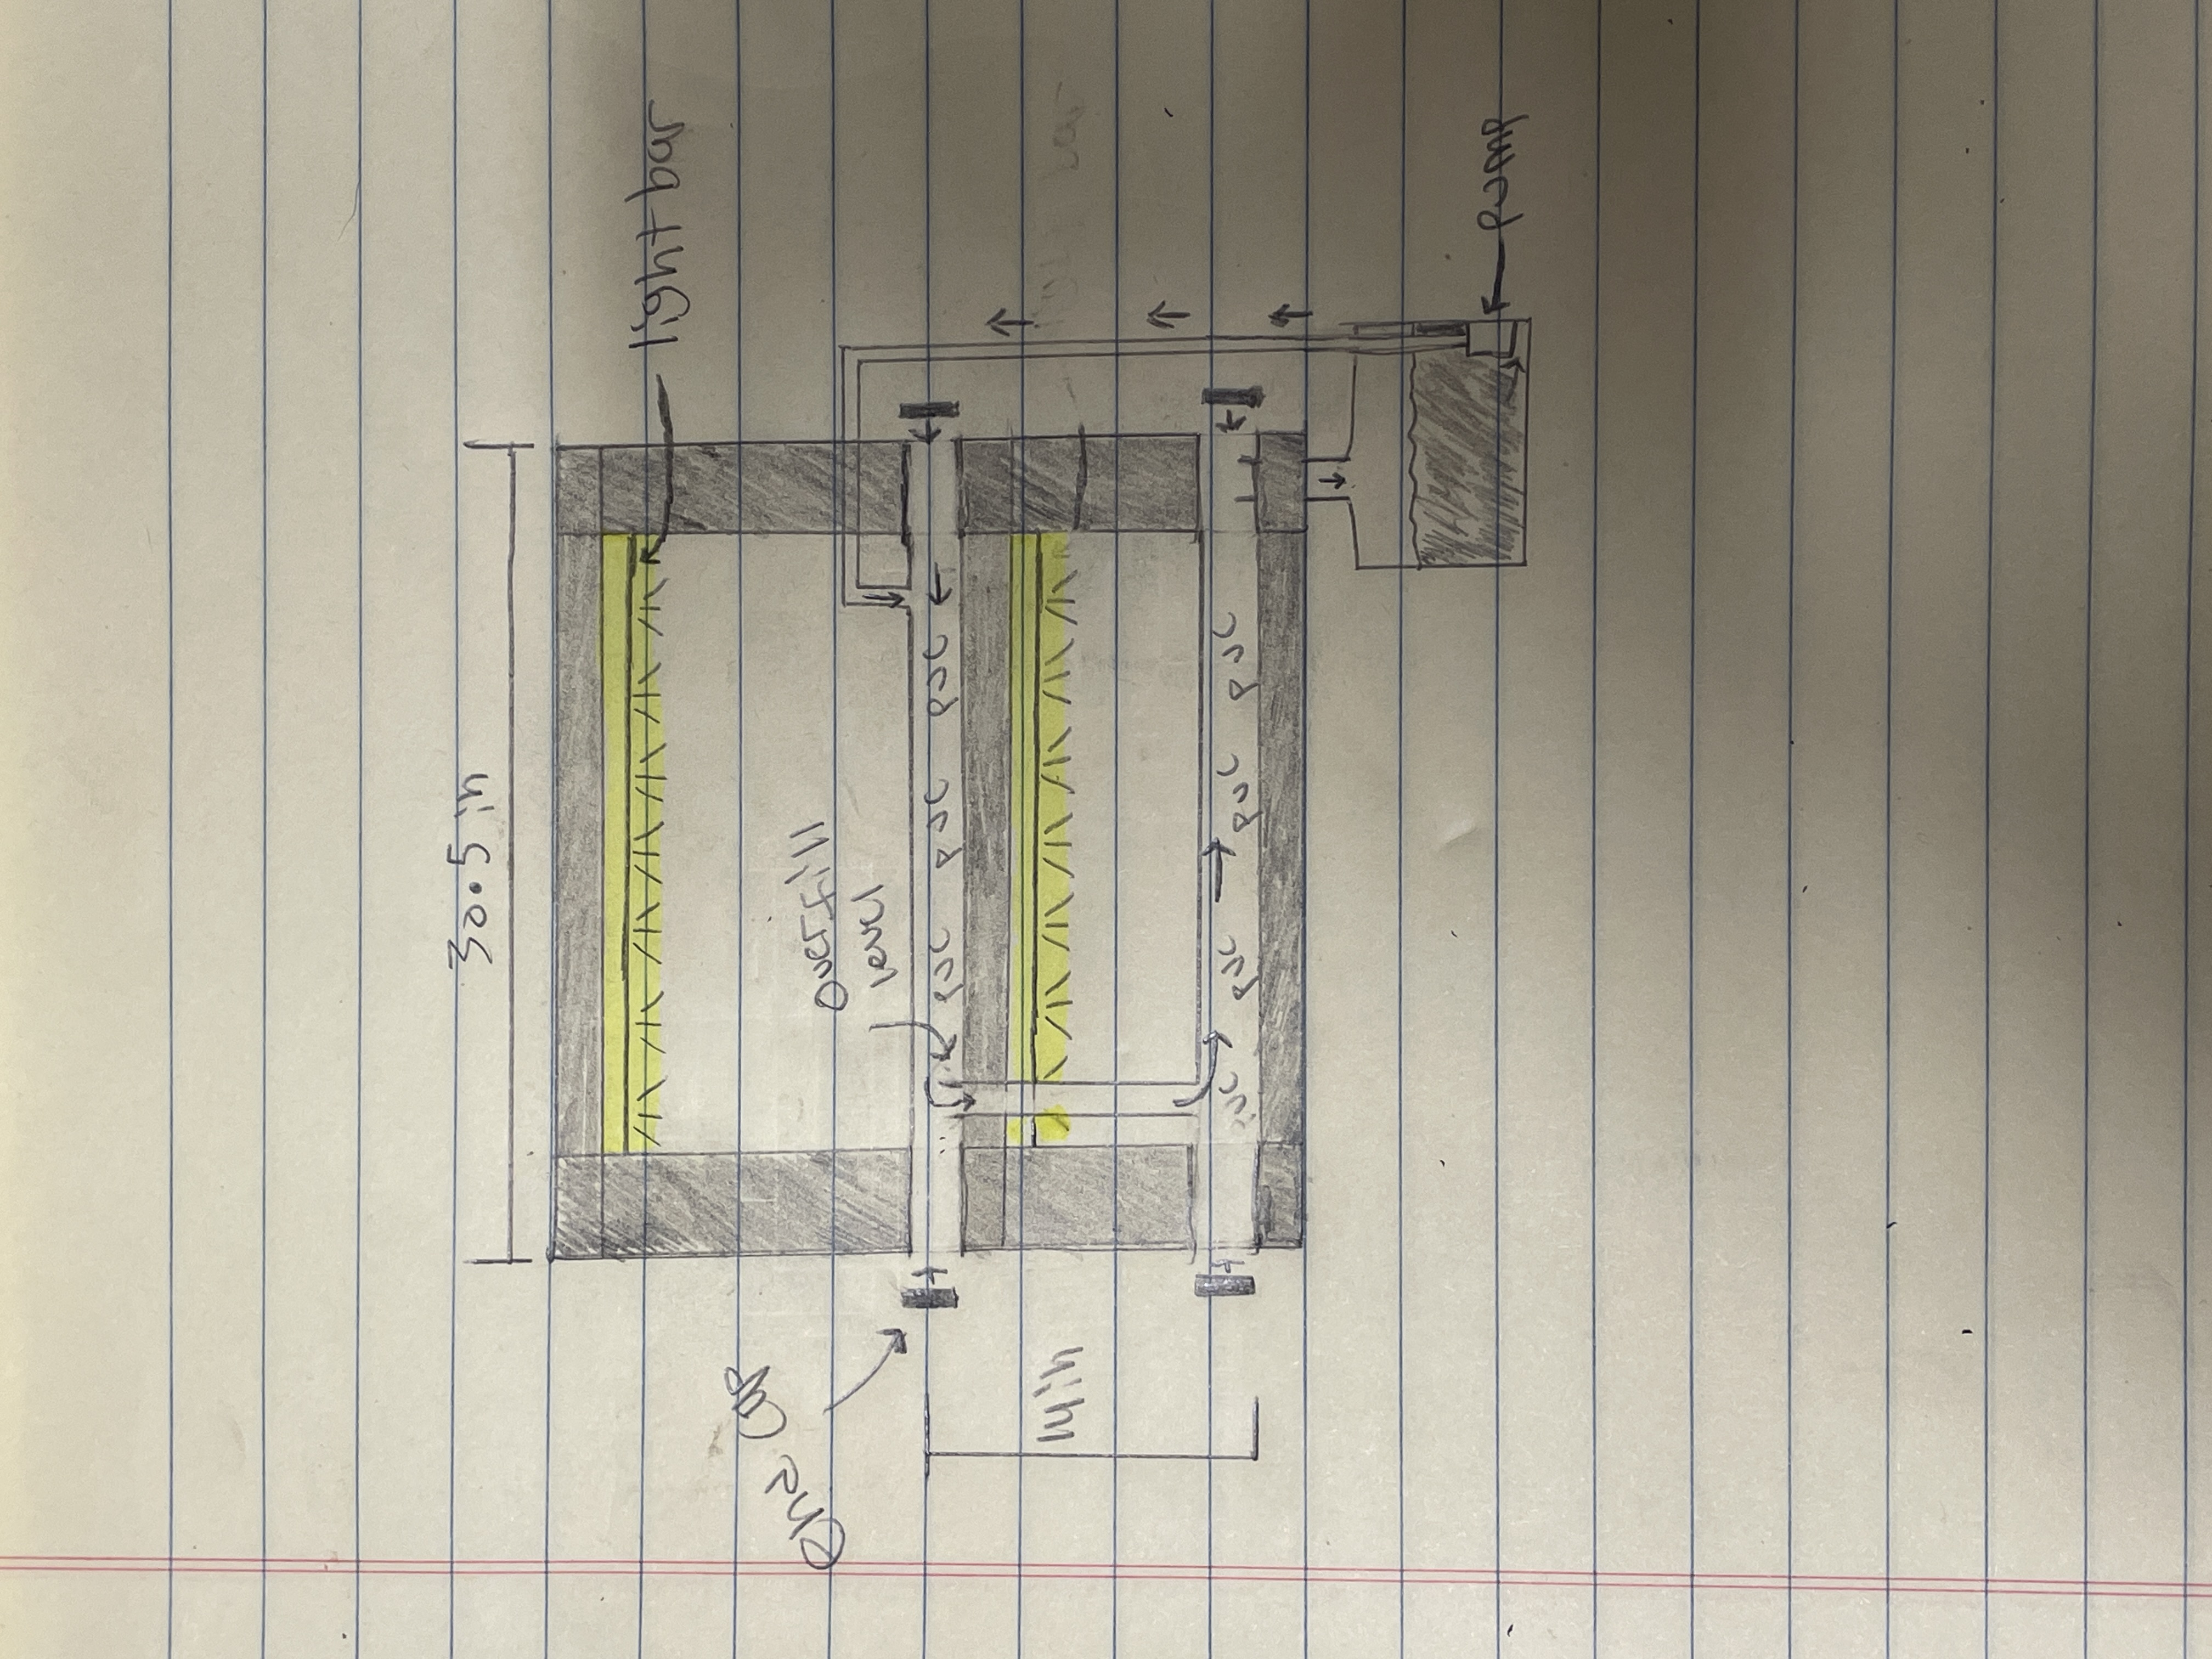 30.5 in
light bar
end cap
overfill
level
PVC PVC PVC
14in
light bar
PVC PVC PVC PVC
pump